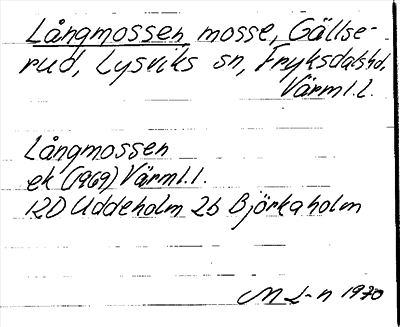 Långmossen mosse, Gällse-
rud, Lysviks sn, Fryksdalshd,
Värml.l.
Långmossen
ek (1969) Värml.l.
12D Uddeholm 2b Björkaholm
M L-n 1970